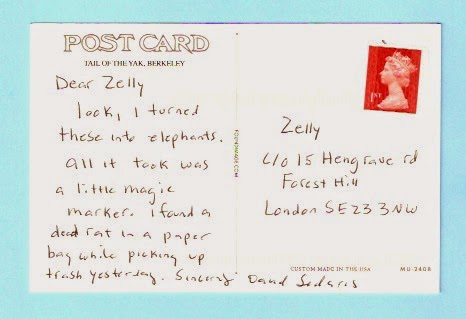 POST CARD
TAIL OF THE YAK, BERKELEY
Dear Zelly
look, I turned
these into elephants.
All it took was
a little magic
marker. I found a
dead rat in a paper
bag while picking up
trash yesterday. Sincerely David Sedaris
1ST
Zelly
c/o 15 Hengrave rd
Forest Hill
London SE23 3NW
CUSTOM MADE IN THE USA
MU 2408